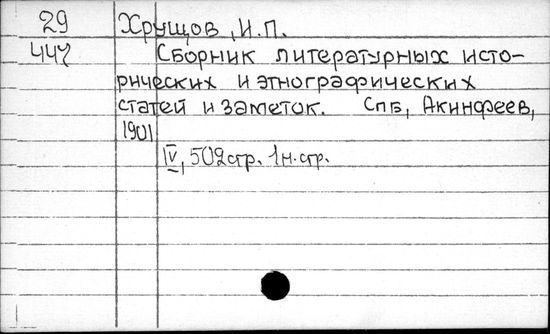 29 Хрущов, И.П.
447 Сборник литературных исто-
рических и этнографических
статей и заметок. Спб, Акинфеев,
1901
IV, 502 стр. 1 н. стр.